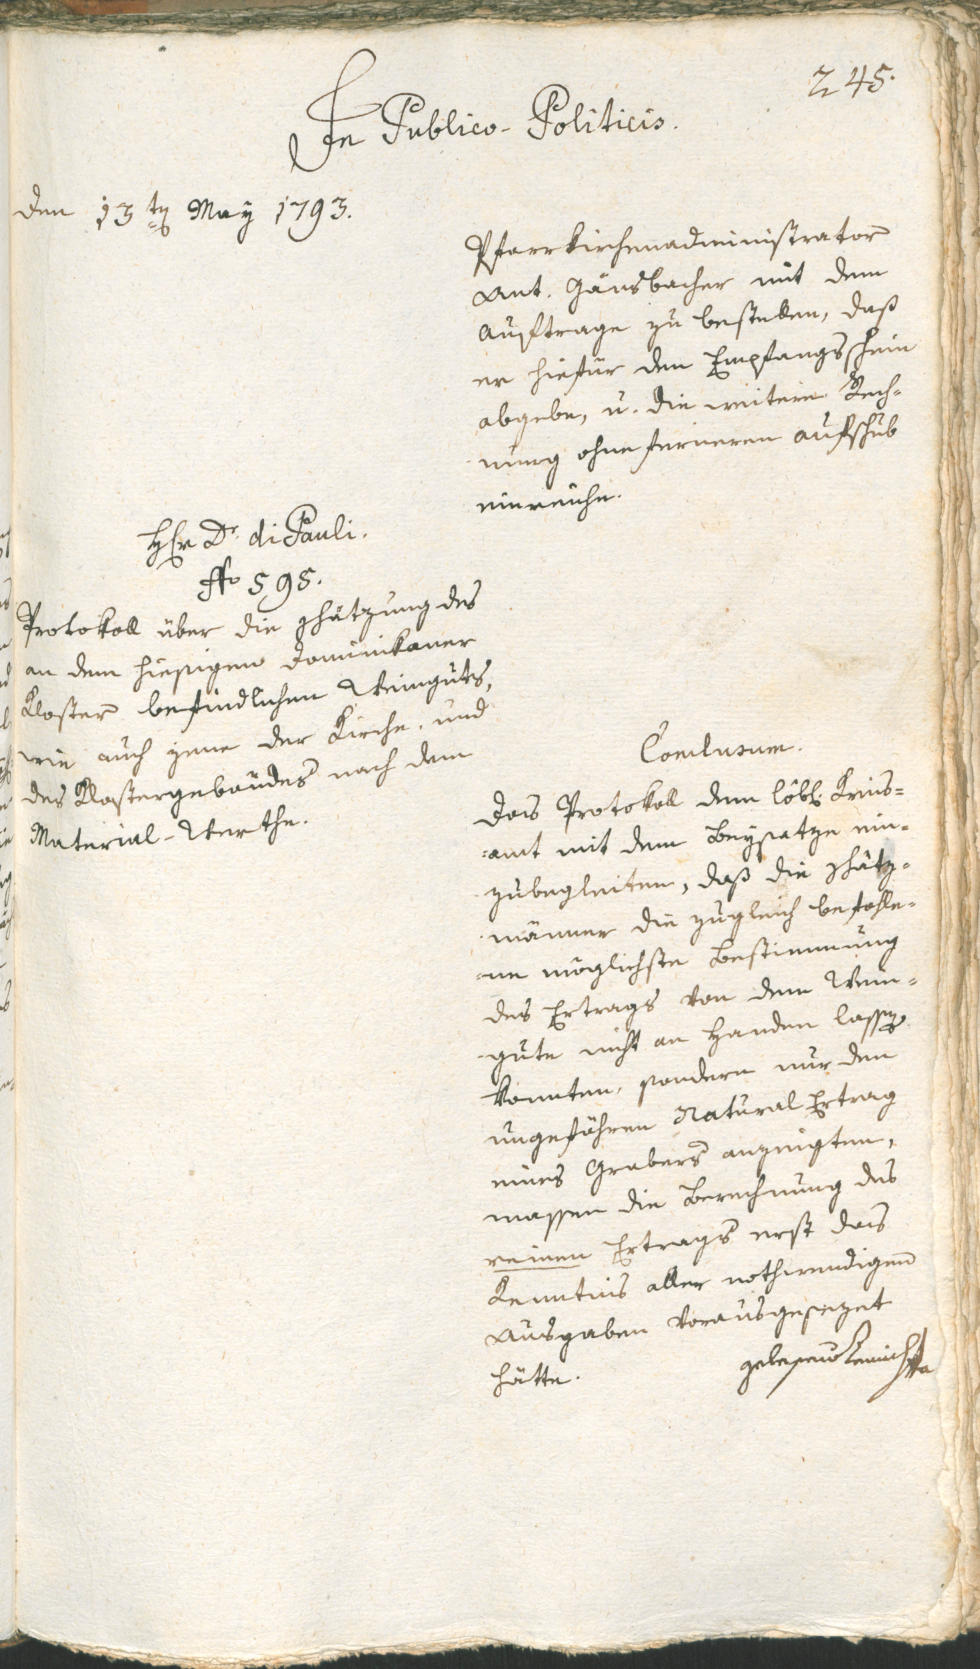 245.
In Publico-Politicis.
den 13 ten May 1793.
Pfarrkirchenadministrator
Ant. Gänsbacher mit dem
Auftrage zu bestellen, daß
er hiefür den Empfangsschein
abgebe, u. die weitere Rech-
nung ohne ferneren aufschub
einreiche.
Hr Dr. di Pauli.
No 595.
Protokoll über die schätzung des
an dem hiesigen Dominikaner
Kloster befindlichen Weinguts,
wie auch jene der Kirche und
des Klostergebäudes nach dem
Material-Werthe.
Conclusum.
Das Protokoll dem löbl. Kreis-
amt mit dem Beysatze ein-
zubegleiten, daß die schätz-
männer die zugleich befohle-
ne möglichste Bestimmung
des Ertrags von dem Wein-
gute nicht an Handen lassen
konnten, sondern nur den
ungefähren Natural Ertrag
eines Grabers anzeigten,
massen die Berechnung des
reinen Ertrags erst das
Kenntnis aller nothwendigen
Ausgaben vorausgesezet
hätte.
gelesen